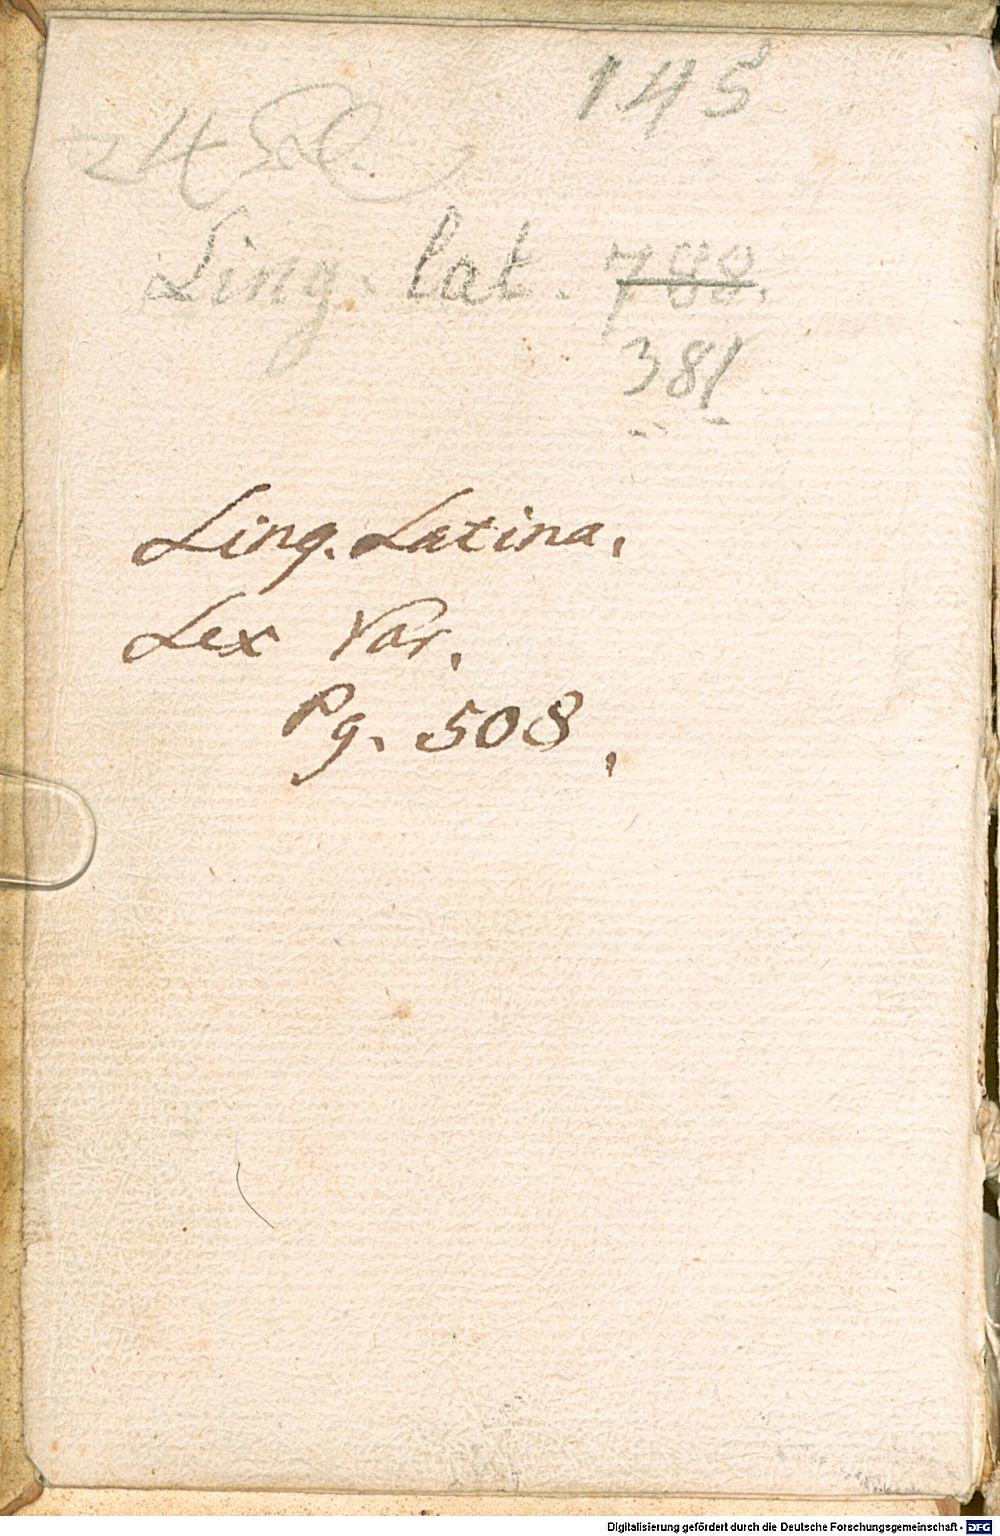 145
24
Ling. lat. 788.
381
Ling. Latina.
Lex Var.
Pg. 508.
Digitalisierung gefördert durch die Deutsche Forschungsgemeinschaft - DFG